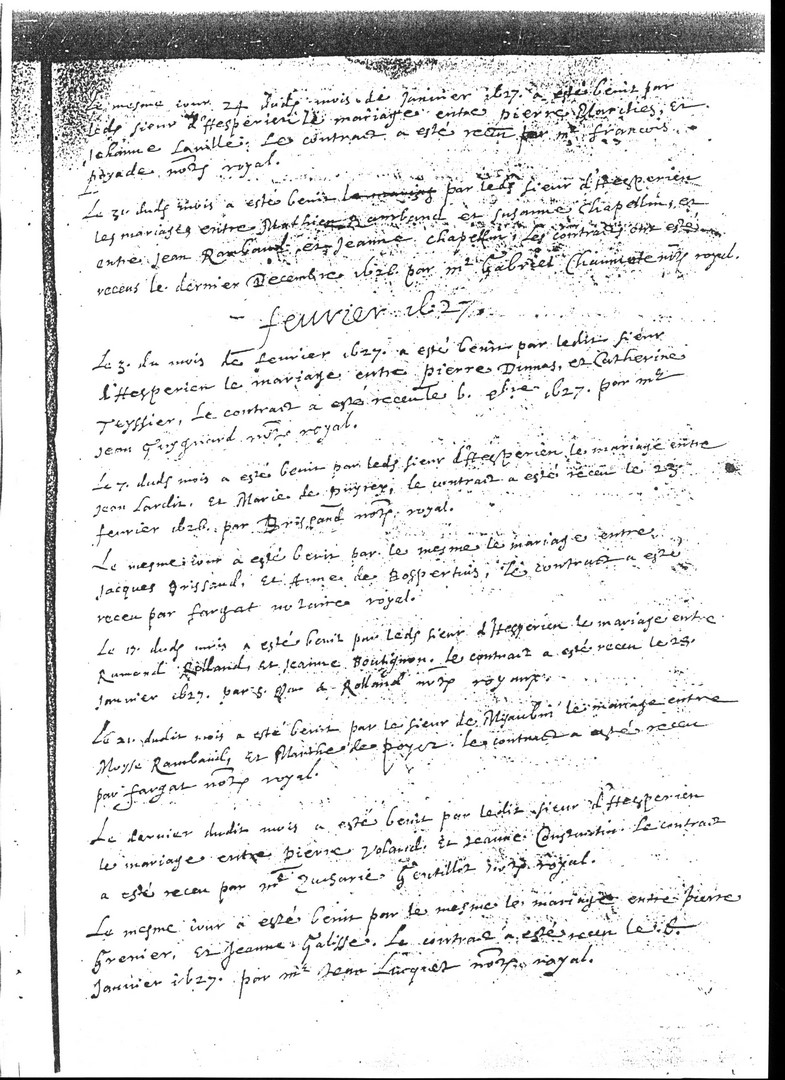 Le mesme iour 24 dudt mois de Janvier 1627. a esté benit par
ledt sieur d'Hesperien le mariage entre pierre et
Jehanne Laville. Le contract a esté receu par mr francois
poyade notre royal.
Le 31 dudt mois a esté benit par ledt sieur d'Hesperien
les mariages entre Mathieu Rambaud et Susanne Chapellin, et
entre Jean Rambaud, et Jeanne chapellin, les contracts ont esté
receus le dernier Decembre 1626. par mr Gabriel notre royal.
feurier 1627.
Le 3. du mois de feurier 1627. a esté benit par ledit sieur
d'Hesperien le mariage entre pierre Dumas, et Catherine
Teyssier, Le contract a esté receu le 6. 1627. par mr
Jean notre royal.
Le 7. dudt mois a esté benit par ledt sieur d'Hesperien le mariage entre
Jean Lardit, Et Marie de puyrey, le contract a esté receu le 23
feurier 1626. par Brissaud notre royal.
Le mesme iour a esté benit par le mesme le mariage entre
Jacques Brissaud, Et Anne de , Le contract a esté
receu par fargat notaire royal.
Le 17. dudt mois a esté benit par ledt sieur d'Hesperien le mariage entre
Ramond Rolland, et Jeanne Boutignon. Le contract a esté receu le 28.
Janvier 1627. par Rolland notre royaux.
Le 21. dudit mois a esté benit par le sieur de le mariage entre
Moyse Rambaud, Et Marthe de poyet. le contract a esté receu
par fargat notre royal.
Le dernier dudit mois a esté benit par ledit sieur d'Hesperien
le mariage entre pierre Volaud, Et Jeanne Constantin. Le contract
a esté receu par mr Zacharie Gentillot notre royal.
Le mesme iour a esté benit par le mesme le mariage entre pierre
Grenier, Et Jeanne Galisse. Le contract a esté receu le 6.
Janvier 1627. par mr Jean Lacquet notre royal.